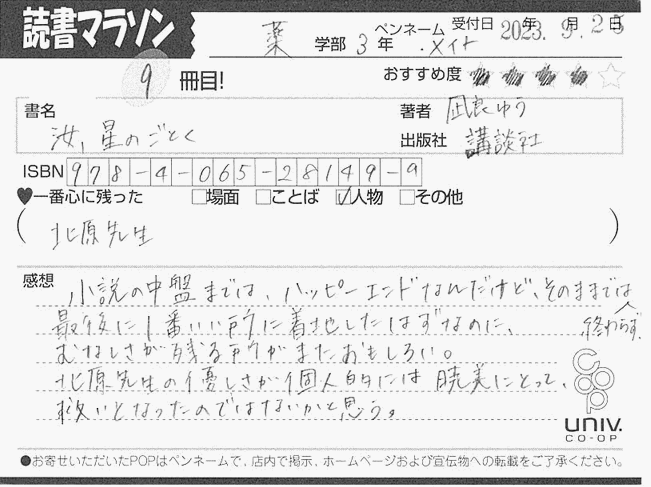 読書マラソン
薬 学部 3 年 ペンネーム ・メイト 受付日 2023年 9月 25日
9 冊目! おすすめ度 ★★★★☆
書名 汝、星のごとく 著者 凪良ゆう
出版社 講談社
ISBN 978-4-065-28149-9
♥一番心に残った □場面 □ことば ☑人物 □その他
( 北原先生 )
感想 小説の中盤までは、ハッピーエンドなんだけど、そのままでは
終わらず、
最後に1番いい所に着地したはずなのに、
むなしさが残る所がまたおもしろい。
北原先生の優しさが個人的には暁美にとって、
救いとなったのではないかと思う。
coop
UNIV.
CO-OP
●お寄せいただいたPOPはペンネームで、店内で掲示、ホームページおよび宣伝物への転載をご了承ください。